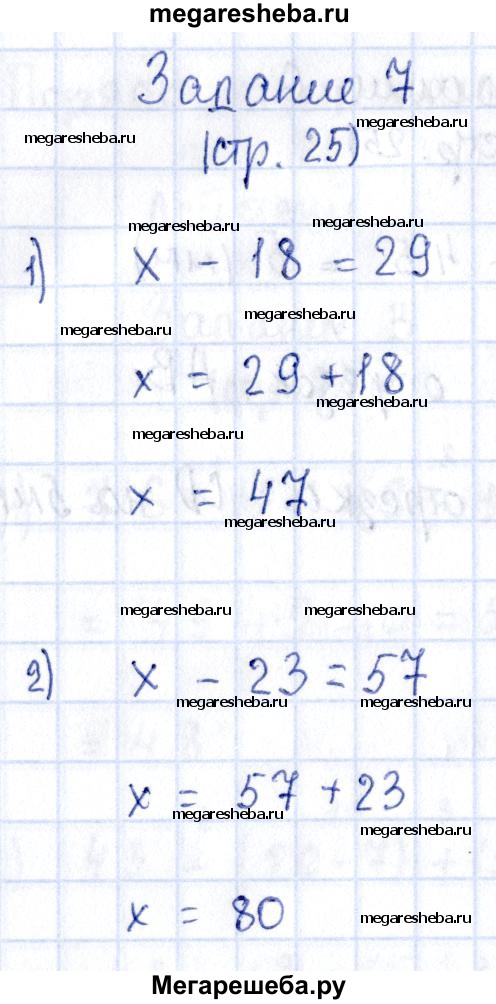 megaresheba.ru
Задание 7
megaresheba.ru megaresheba.ru
(стр. 25)
megaresheba.ru megaresheba.ru
1) x - 18 = 29
megaresheba.ru megaresheba.ru
x = 29 + 18
megaresheba.ru
megaresheba.ru
x = 47
megaresheba.ru
megaresheba.ru megaresheba.ru
2) x - 23 = 57
megaresheba.ru megaresheba.ru
x = 57 + 23
megaresheba.ru
megaresheba.ru
x = 80
megaresheba.ru
Мегарешеба.ру